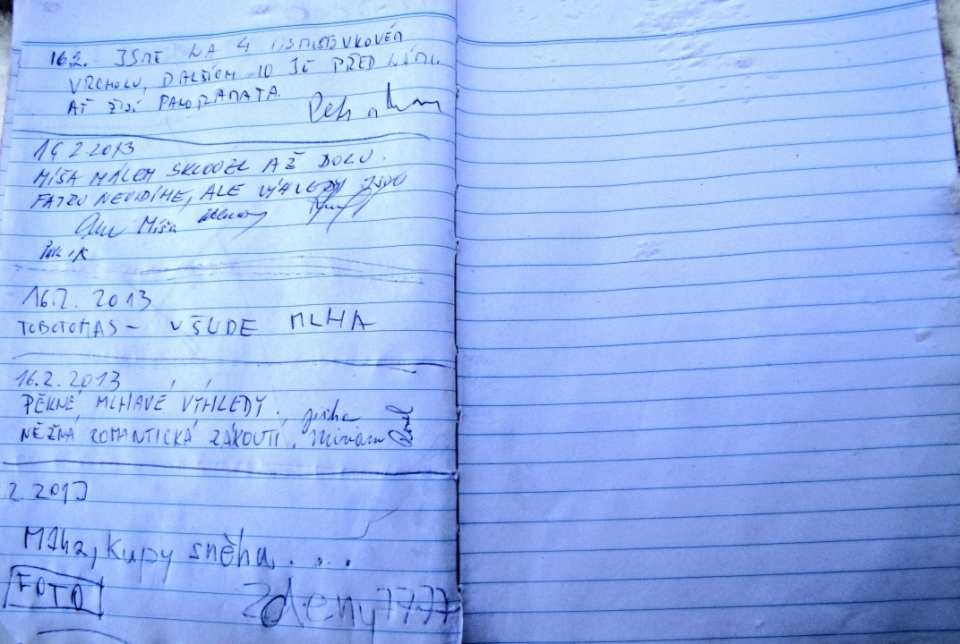 16.2. JSME NA 4 OSMISTOVKOVÉM
VRCHOLU, DALŠÍCH 10 JE PŘED NÁMI.
AŤ ŽIJÍ PANORAMATA.
16.2.2013
MÍŠA MÁLEM SKLOUZL AŽ DOLU.
FATRU NEVIDÍME, ALE VÝHLEDY JSOU
Míša
16.2. 2013
TOBOTOMAS - VŠUDE MLHA
16.2.2013
PĚKNÉ, MLHAVÉ VÝHLEDY.
NĚŽNÁ ROMANTICKÁ ZÁKOUTÍ.
Miriam
2 2013
Mlha, kupy sněhu, ....
FOTO
Zdeny7777